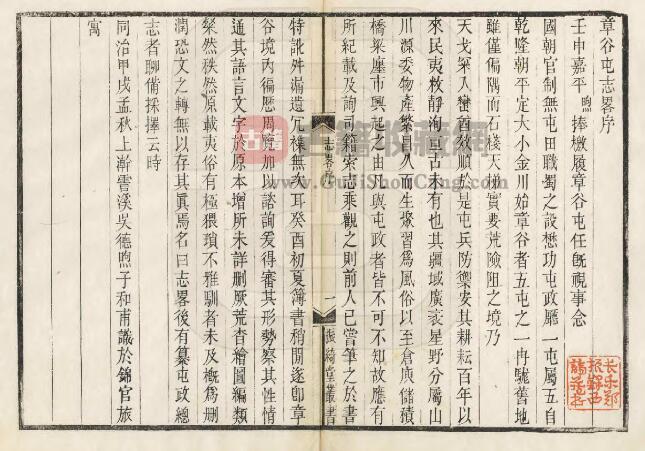 章谷屯志畧序
壬申嘉平煦捧檄履章谷屯任旣視事念
國朝官制無屯田職蜀之設懋功屯政廳一屯屬五自
乾隆朝平定大小金川始章谷者五屯之一冉駹舊地
雖僅偏隅而石棧天梯實要荒險阻之境乃
天戈深入蠻酋效順於是屯兵防禦安其耕耘百年以
來民夷敉靜洵亙古未有也其疆域廣袤星野分屬山
川源委物產繁滋人而生聚習為風俗以至倉庾儲積
橋梁塵市興起之由凡與屯政者皆不可不知故應有
所紀載及詢司籍索志乘觀之則前人已嘗筆之於書
特訛舛漏遺冗襍無次耳癸酉初夏簿書稍閒逐卽章
谷境內徧歷周覽加以諮詢爰得審其形勢察其性情
通其語言文字於原本增所未詳刪厥荒杳繪圖編類
粲然秩然原載夷俗有極猥瑣不雅馴者未及槪為刪
潤恐文之轉無以存其眞焉名曰志畧後有纂屯政總
志者聊備採擇云時
同治甲戌孟秋上澣雲溪吳德煦子和甫識於錦官旅
寓
志畧序
一
振綺堂叢書
古籍收藏網
www.GujiShouCang.com